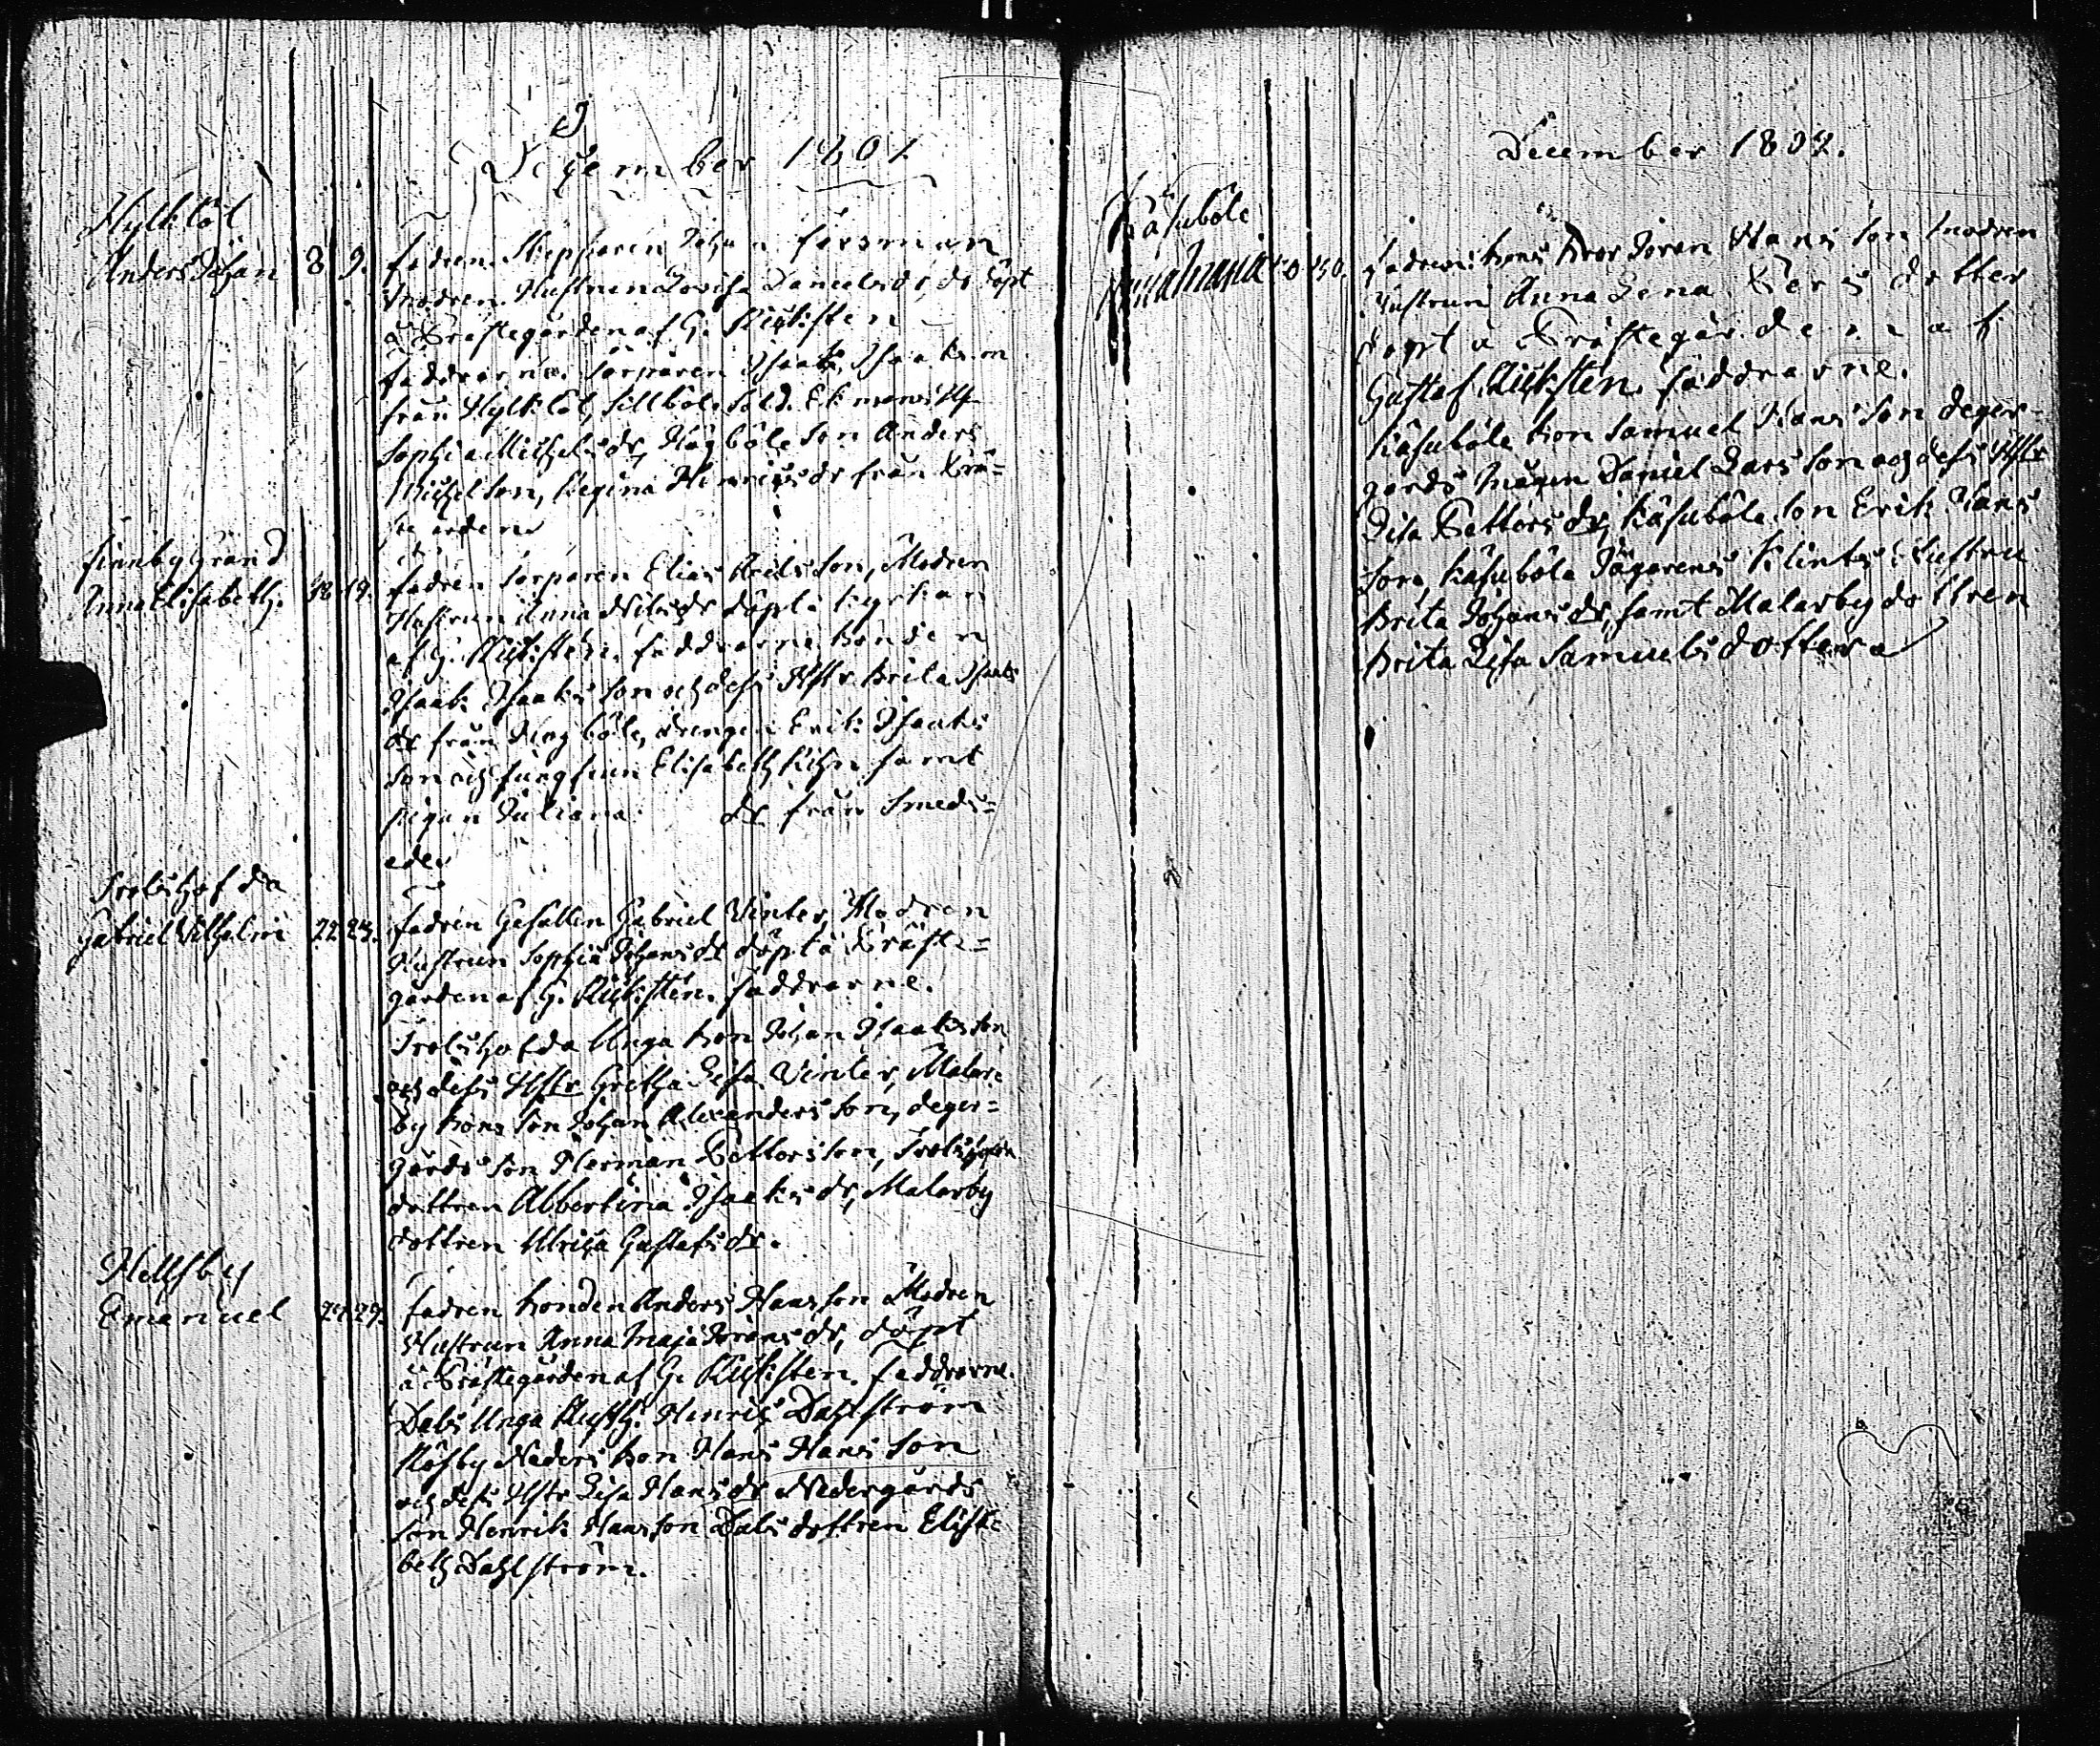 December 1801.
Hylktöl
Anders Johan 8 9.
fadren. Skepparen Johan Forsman
Modren. Hustrun Lovisa Danielsdr, döpt
å Prästegården af G.
faddrarne. Torparen Isaak Isaaks
från Hylktöl, Sillböl. Sold. Ekmans H
Sophia Michelsdr, Hagböle Son Anders
Michelson, Regina Henricsdr från Prä=
ste
finnby Gränd
Anna Elisabeth. 18 19.
fadren Torparen Elias Arils son, Modren
Hustrun Anna Nilsdr döpt i kyrkan
af G. faddrarne Bonden
Isaak Isaaks son och dess Hstr Brita Isaks
dr från Hagböle, drengen Erik Isaaks
son och Jungfrun Elisabeth samt
pigan Juliana dr från Smeds=
ede
Trolshofda
Gabriel Vilhelm 22 23.
fadren Gesällen Gabriel Vinter, Modren
Hustrun Sophia Johansdr döpt å Präste=
gården af G. faddrarne.
Trolshofda Unga bon Johan Isaaksson
och dess Hstr Gretha Lisa Vinter, Malar
by bons Son Johan Alexandersson, deger=
gårds son Herman Pettersson, Trolshofda
dottren Albertina Isaaksdr, Malarby
dottren Ulrica Gustafsdr.
Hellsby
Emanuel 24 29.
fadren bonden Anders Hansson Modren
Hustrun Anna Maja Jöransdr, döpt
å Prästegården af G. faddrarne.
Dals Unga Henrich Dahlström
Näsby Neders bon Hans Hans son
och dess Hstr Lisa Hansdr Nedergårds
Son Henrik Hansson Dals dottren Elisa
beth Dahlström.
December 1801.
Käsuböle
Anna Maria 30.
fadren: bons bror Jöran Hans son Modren
Hustrun Anna Lena Pers dotter
döpt å Prästegården af
Gustaf faddrarne.
Käsuböle bon Samuel Hans son deger-
gårds mågen Daniel Lars son och dess Hstr
Lisa Pettersdr, Käsuböle Son Erik Hans
son, Käsuböle Jägarens Klints Hustru
Brita Johansdr, samt Malarby dottren
Brita Lisa Samuels dotter